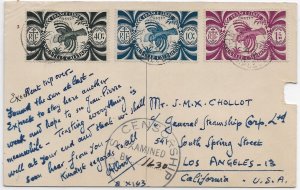 40c 10c 1F
Excellent trip over.
Found the sun at last -
Expect to be here another
week and hope to see Jean-Pierre
meanwhile - Trusting everything is
well at your end and that we shall
soon hear from you
Kindest regards
8 XI 43
CENSORSHIP
EXAMINED
BY
1630
Mr. S.M.X. CHOLLOT
c/ General Steamship Corp. Ltd
541 South Spring Street
LOS ANGELES - 13
California U.S.A.